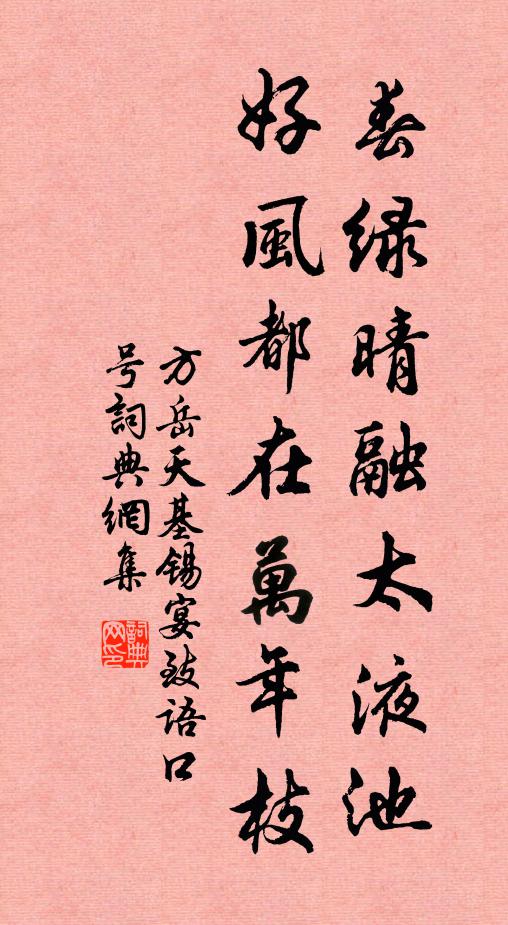 春绿晴融太液池
好風都在萬年枝
方岳天基锡宴致语口
号詞典網集
詞典
网印